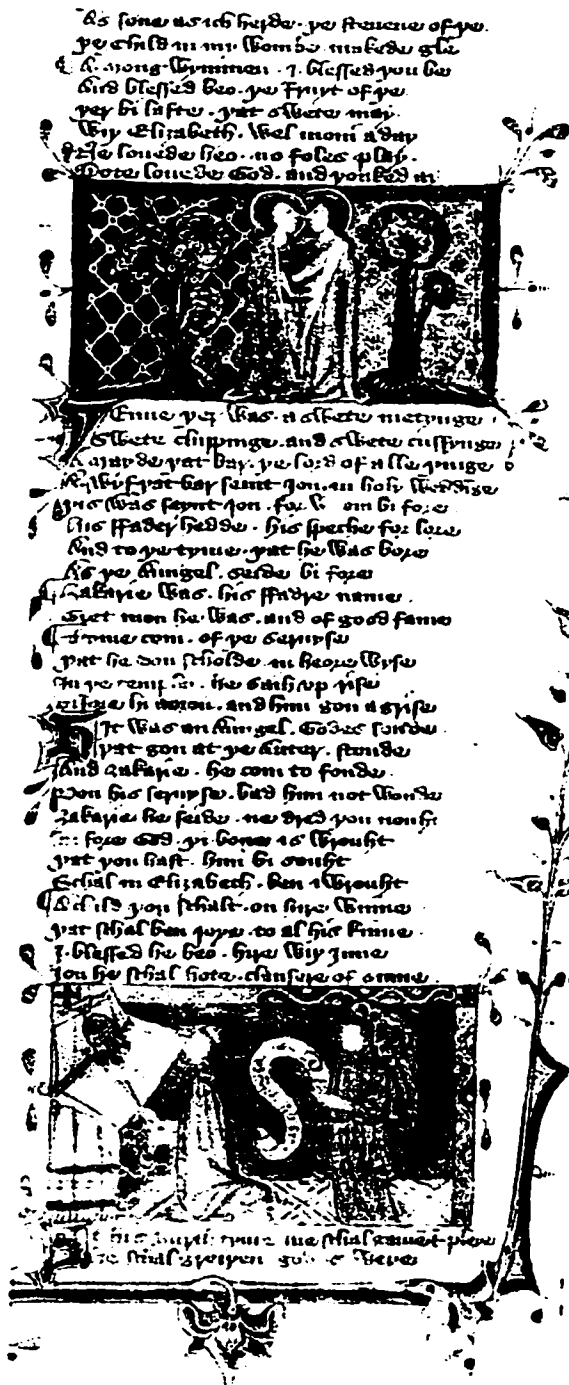 As sone as ich herde · þe steuene of þe
þe child in my Wombe · makede gle
A mong Wymmen · I blessed þou be
And blessed beo · þe Fruyt of þe
þer bi lafte · þat swete may
Wiþ Elizabeth · Wel moni a day
Heo louede heo · no foles play
Bote louede God · and þonked ay
þenne þer Was · a swete metynge
Swete clippinge · and swete cussynge
A Mayde þat bar · þe lord of alle þinge
A Wyf þat bar seint Jon · in holy Weddige
þis Was seynt Jon · for W om bi fore
his ffader hedde · his speche for lore
And to þe tyme · þat he Was bore
As þe Aungel · seide bi fore
Zakarie Was · his ffadre name
Gret mon he Was · and of good fame
tyme com · of þe seruyse
þat he don scholde · in heore Wyse
In þe temple · he sauh up rise
him gon agrise
Hit Was an Aungel · Godes sonde
þat gon at þe Auter · stonde
And Zakarie · he com to fonde
Don his seruyse · bad him not Wonde
Zakarie he seide · ne dred þou nouht
bi fore God · þi bone is Wrouht
þat þou hast · him bi souht
Schal in Elizabeth · ben i Wrouht
A child þou schalt · on hire Winne
þat schal ben joye · to al his kinne
I blessed he beo · hire Wiþ Inne
Jon he schal hote · clansere of sinne
his burth tyme me schal
he schal